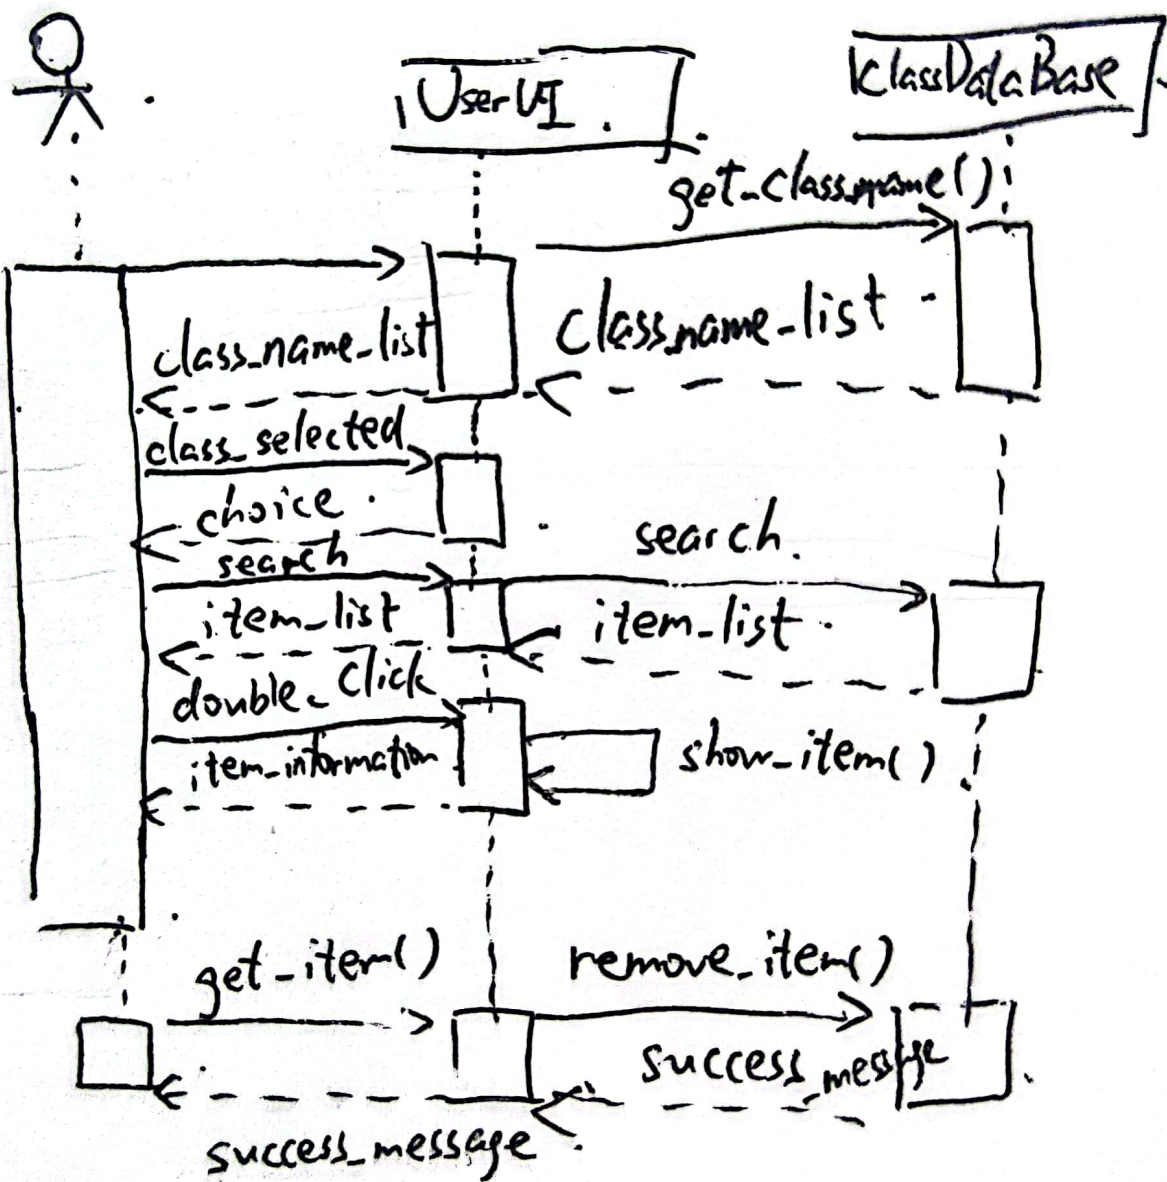 UserUI
ClassDataBase
get_class_name()
class_name_list
class_name_list
class_selected
choice
search
search
item_list
item_list
double_click
item_information
show_item()
get_item()
remove_item()
success_message
success_message